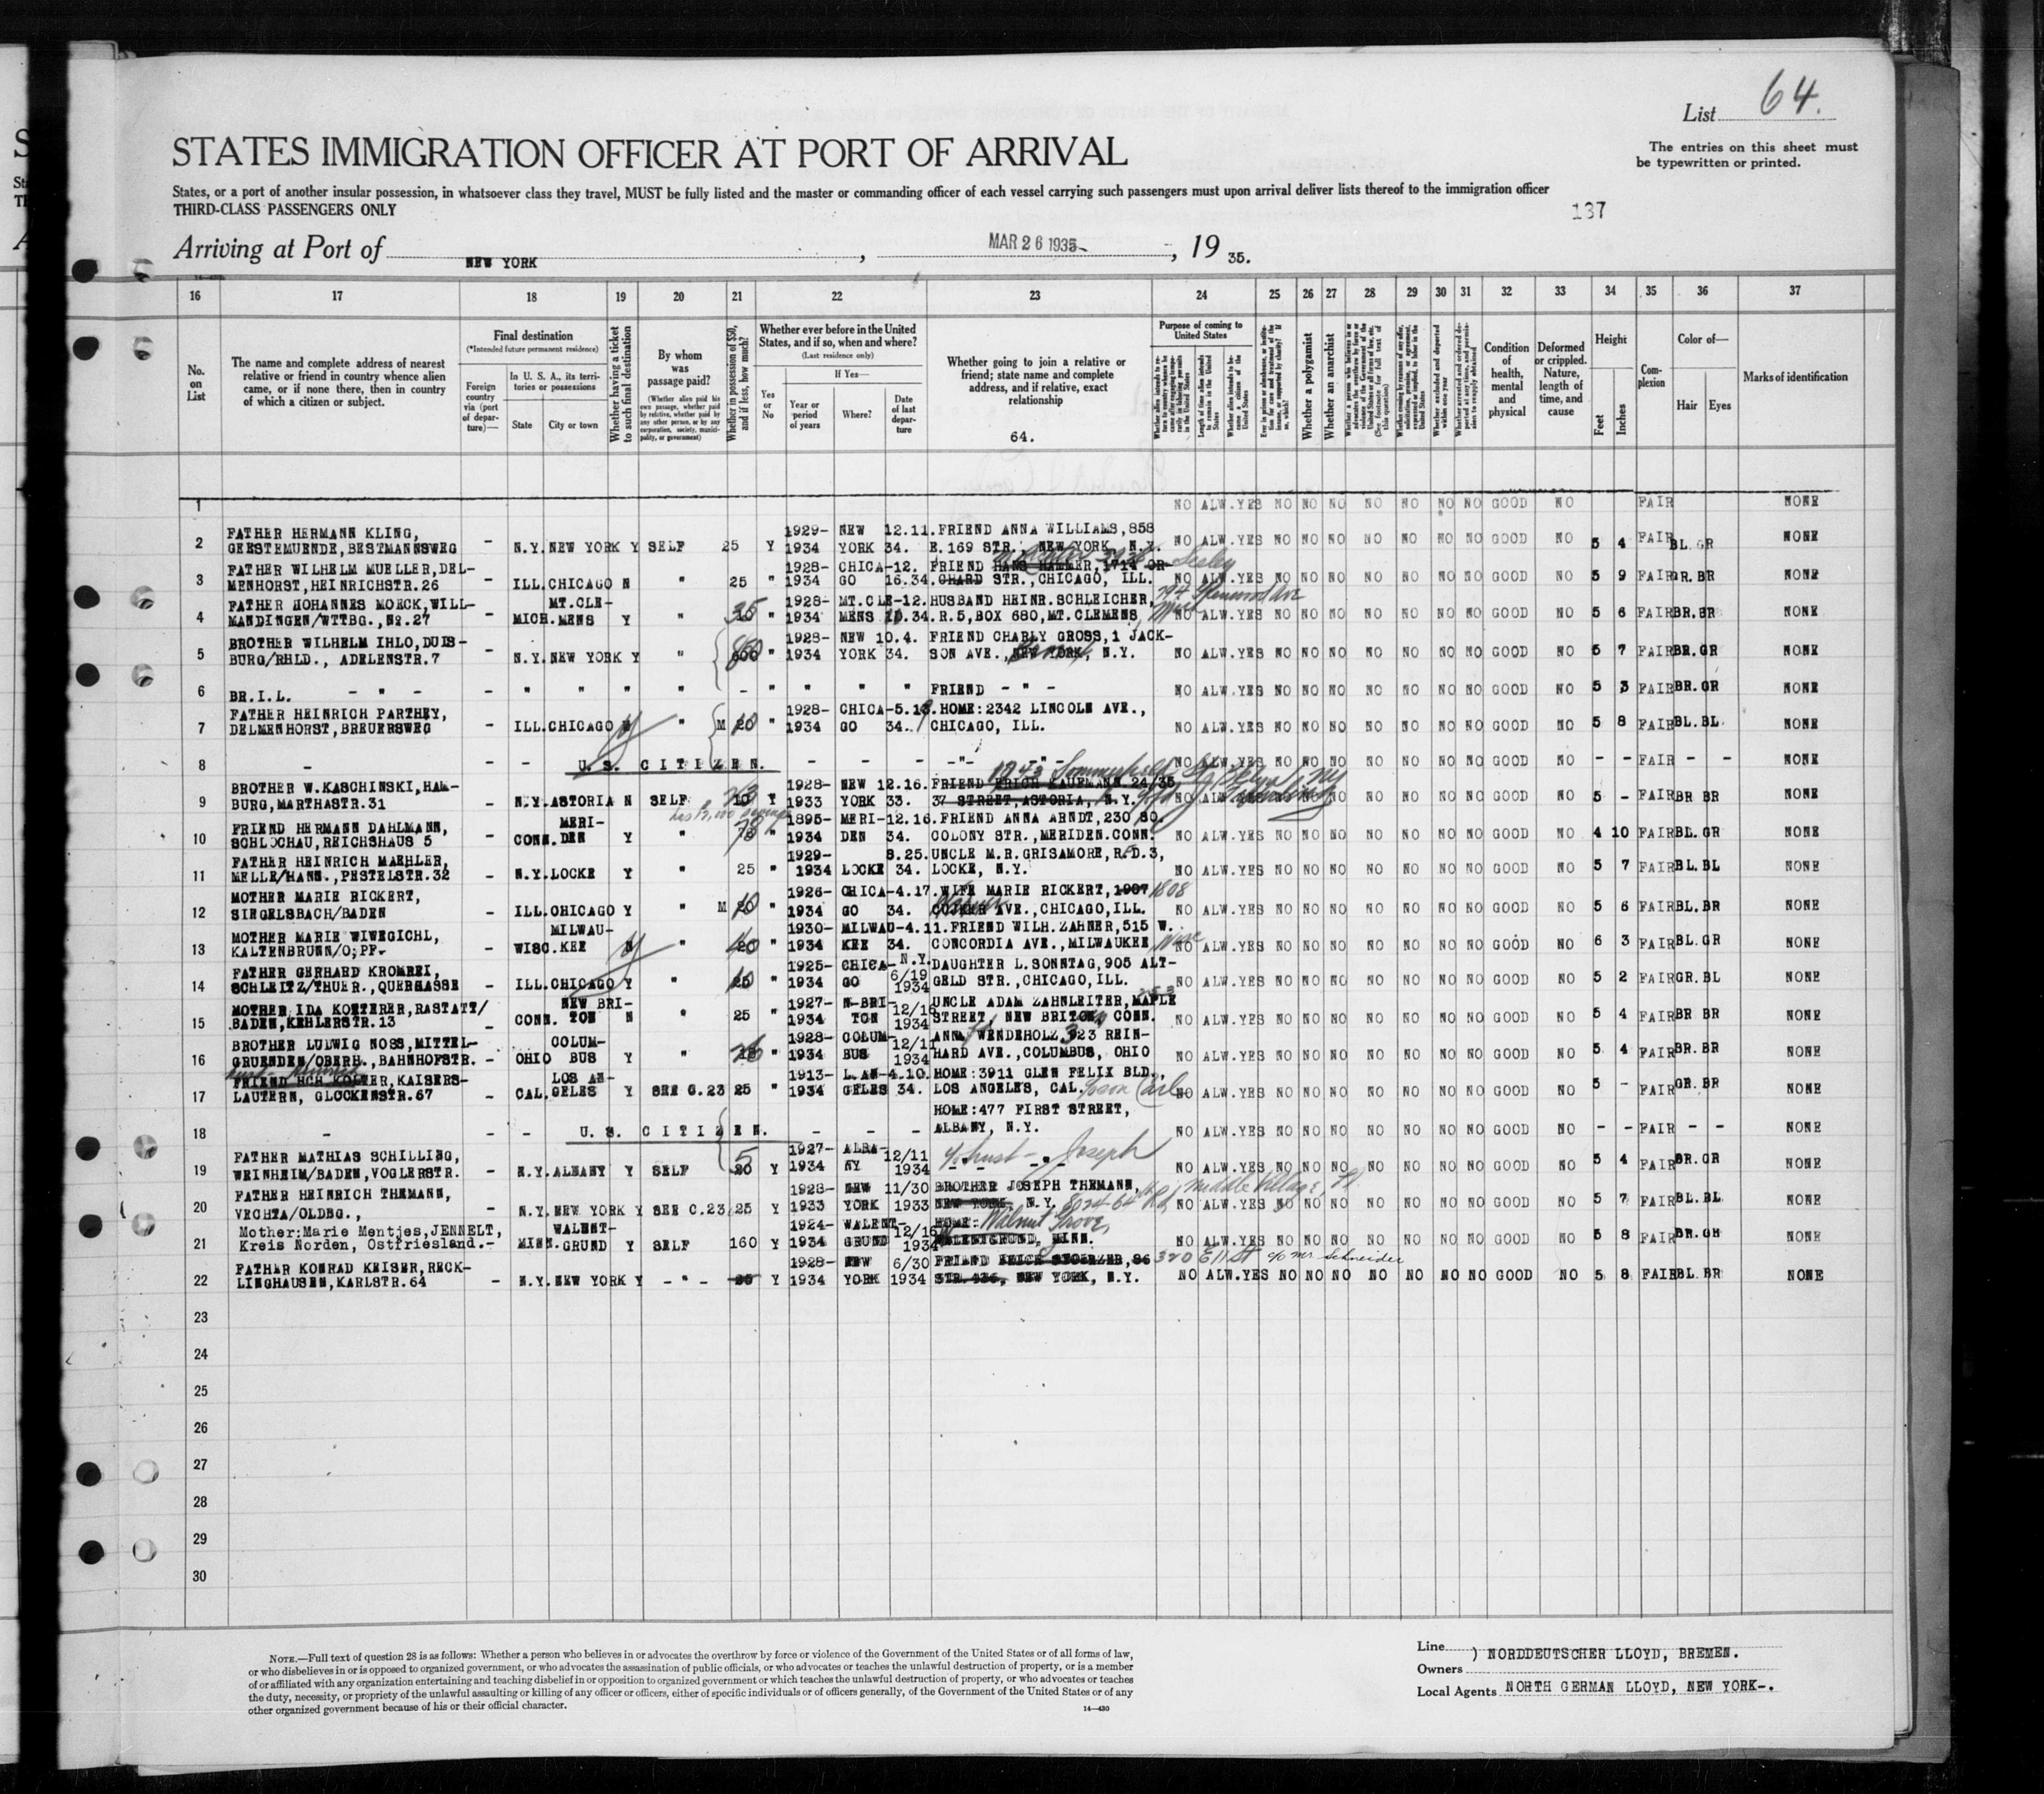 List 64.
STATES IMMIGRATION OFFICER AT PORT OF ARRIVAL
The entries on this sheet must
be typewritten or printed.
States, or a port of another insular possession, in whatsoever class they travel, MUST be fully listed and the master or commanding officer of each vessel carrying such passengers must upon arrival deliver lists thereof to the immigration officer
THIRD-CLASS PASSENGERS ONLY
137
Arriving at Port of NEW YORK, MAR 26 1935, 19 35.
16 17 18 19 20 21 22 23 24 25 26 27 28 29 30 31 32 33 34 35 36 37
No. on List
The name and complete address of nearest relative or friend in country whence alien came, or if none there, then in country of which a citizen or subject.
Final destination
(*Intended future permanent residence)
Foreign country via (port of departure)—
In U. S. A., its territories or possessions
State
City or town
Whether having a ticket to such final destination
By whom was passage paid?
(Whether alien paid his own passage, whether paid by relative, whether paid by any other person, or by any corporation, society, municipality, or government)
Whether in possession of $50, and if less, how much?
Whether ever before in the United States, and if so, when and where?
(Last residence only)
Yes or No
If Yes—
Year or period of years
Where?
Date of last departure
Whether going to join a relative or friend; state name and complete address, and if relative, exact relationship
64.
Purpose of coming to United States
Whether a polygamist
Whether an anarchist
Condition of health, mental and physical
Deformed or crippled. Nature, length of time, and cause
Height
Feet
Inches
Complexion
Color of—
Hair
Eyes
Marks of identification
1 NO ALW.YES NO NO NO NO NO NO NO GOOD NO FAIR NONE
FATHER HERMANN KLING, 1929- NEW 12.11. FRIEND ANNA WILLIAMS, 858
2 GEESTEMUENDE, BESTMANNSWEG - N.Y. NEW YORK Y SELF 25 Y 1934 YORK 34. E. 169 STR., NEW YORK, N.Y. NO ALW.YES NO NO NO NO NO NO NO GOOD NO 5 4 FAIR BL. GR NONE
FATHER WILHELM MUELLER, DEL- 1928- CHICA- 12. FRIEND HANS HAMMER, 1714 OR-
3 MENHORST, HEINRICHSTR. 26 - ILL. CHICAGO N " 25 " 1934 GO 16.34. CHARD STR., CHICAGO, ILL. NO ALW.YES NO NO NO NO NO NO NO GOOD NO 5 9 FAIR GR. BR NONE
FATHER JOHANNES MOECK, WILL- MT.CLE- 1928- MT.CLE- 12. HUSBAND HEINR. SCHLEICHER,
4 MANDINGEN/WTTBG., No. 27 MICH. MENS Y " 35 " 1934 MENS 10.34. R. 5, BOX 680, MT. CLEMENS, Mich NO ALW.YES NO NO NO NO NO NO NO GOOD NO 5 6 FAIR BR. BR NONE
BROTHER WILHELM IHLO, DUIS- 1928- NEW 10.4. FRIEND CHARLY GROSS, 1 JACK-
5 BURG/RHLD., ADELENSTR. 7 - N.Y. NEW YORK Y " " 1934 YORK 34. SON AVE., NEW YORK, N.Y. NO ALW.YES NO NO NO NO NO NO NO GOOD NO 5 7 FAIR BR. GR NONE
6 BR.I.L. - " - - " " " " - " " " " FRIEND - " - NO ALW.YES NO NO NO NO NO NO NO GOOD NO 5 3 FAIR BR. GR NONE
FATHER HEINRICH PARTHEY, 1928- CHICA- HOME: 2342 LINCOLN AVE.,
7 DELMENHORST, BREUERSWEG - ILL. CHICAGO y " M 10 " 1934 GO 34. CHICAGO, ILL. NO ALW.YES NO NO NO NO NO NO NO GOOD NO 5 8 FAIR BL. BL NONE
8 - - - U. S. CITIZEN. - - - - -"- NO ALW.YES NO NO NO NO NO NO NO GOOD NO - - FAIR - - NONE
BROTHER W. KASCHINSKI, HAM- 1928- NEW 12.16. FRIEND ERICH KAUFMANN 24/35
9 BURG, MARTHASTR. 31 - N.Y. ASTORIA N SELF Y 1933 YORK 33. 37 STREET, ASTORIA, N.Y. NO ALW NO NO NO NO GOOD NO 5 - FAIR BR BR NONE
FRIEND HERMANN DAHLMANN, MERI- 1895- MERI- 12.16. FRIEND ANNA ARNDT, 230 SO.
10 SCHLOCHAU, REICHSHAUS 5 - CONN. DEN Y " " 1934 DEN 34. COLONY STR., MERIDEN. CONN. NO ALW.YES NO NO NO NO NO NO NO GOOD NO 4 10 FAIR BL. GR NONE
FATHER HEINRICH MAEHLER, 1929- 8.25. UNCLE M.R. GRISAMORE, R.F.D. 3,
11 MELLE/HANN., PESTELSTR. 32 - N.Y. LOCKE Y " 25 " 1934 LOCKE 34. LOCKE, N.Y. NO ALW.YES NO NO NO NO NO NO NO GOOD NO 5 7 FAIR BL. BL NONE
MOTHER MARIE RICKERT, 1926- CHICA- 4.17. WIFE MARIE RICKERT, 1907 1808
12 SINGELSBACH/BADEN - ILL. CHICAGO Y " M 10 " 1934 GO 34. AVE., CHICAGO, ILL. NO ALW.YES NO NO NO NO NO NO NO GOOD NO 5 6 FAIR BL. BR NONE
MOTHER MARIE WIWEGICHL, MILWAU- 1930- MILWAU- 4.11. FRIEND WILH. ZAHNER, 515 W.
13 KALTENBRUNN/O;PF- - WISC. KEE y " " 1934 KEE 34. CONCORDIA AVE., MILWAUKEE Wisc NO ALW.YES NO NO NO NO NO NO NO GOOD NO 6 3 FAIR BL. GR NONE
FATHER GERHARD KROMREI, 1925- CHICA- N.Y. 6/19 DAUGHTER L. SONNTAG, 905 ALT-
14 SCHLEITZ/THUER., QUERGASSE - ILL. CHICAGO Y " " 1934 GO 1934 GELD STR., CHICAGO, ILL. NO ALW.YES NO NO NO NO NO NO NO GOOD NO 5 2 FAIR GR. BL NONE
MOTHER IDA KOETERER, RASTATT/ NEW BRI- 1927- N-BRI- 12/16 UNCLE ADAM ZAHNLEITER, MAPLE
15 BADEN, KEHLERSTR. 13 - CONN. TON N " 25 " 1934 TON 1934 STREET, NEW BRITON, CONN. NO ALW.YES NO NO NO NO NO NO NO GOOD NO 5 4 FAIR BR BR NONE
BROTHER LUDWIG NOSS, MITTEL- COLUM- 1928- COLUM- 12/11 ANNA WENDEHOLZ 323 REIN-
16 GRUENDEN/OBERH., BAHNHOFSTR. - OHIO BUS Y " " 1934 BUS 1934 HARD AVE., COLUMBUS, OHIO NO ALW.YES NO NO NO NO NO NO NO GOOD NO 5 4 FAIR BR. BR NONE
FRIEND HCH KOLTER, KAISERS- LOS AN- 1913- L. AN- 4.10. HOME: 3911 GLEN FELIX BLD.,
17 LAUTERN, GLOCKENSTR. 67 - CAL. GELES Y SEE C. 23 25 " 1934 GELES 34. LOS ANGELES, CAL. son Carl NO ALW.YES NO NO NO NO NO NO NO GOOD NO 5 - FAIR GR. BR NONE
HOME: 477 FIRST STREET,
18 - - - U. S. CITIZEN. - - - ALBANY, N.Y. NO ALW.YES NO NO NO NO NO NO NO GOOD NO - - FAIR - - NONE
FATHER MATHIAS SCHILLING, 1927- ALBA- 12/11
19 WEINHEIM/BADEN, VOGLERSTR. - N.Y. ALBANY Y SELF 5 20 Y 1934 NY 1934 - " - Joseph NO ALW.YES NO NO NO NO NO NO NO GOOD NO 5 4 FAIR BR. GR NONE
FATHER HEINRICH THEMANN, 1928- NEW 11/30 BROTHER JOSEPH THEMANN, Middle Village,
20 VECHTA/OLDBG., - N.Y. NEW YORK Y SEE C. 23 25 Y 1933 YORK 1933 NEW YORK, N.Y. NO ALW.YES NO NO NO NO NO NO NO GOOD NO 5 7 FAIR BL. BL NONE
Mother: Marie Mentjes, JENNELT, WALENT- 1924- WALENT- 12/16 HOME: Walnut Grove,
21 Kreis Norden, Ostfriesland. - MINN. GRUND Y SELF 160 Y 1934 GRUND 1934 MINN. NO ALW.YES NO NO NO NO NO NO NO GOOD NO 5 8 FAIR BR. GR NONE
FATHER KONRAD KEISER, RECK- 1928- NEW 6/30 FRIEND 86 320 E 11 St c/o Mr Schneider
22 LINGHAUSEN, KARLSTR. 64 - N.Y. NEW YORK Y - " - Y 1934 YORK 1934 STR. 436, NEW YORK, N.Y. NO ALW.YES NO NO NO NO NO NO NO GOOD NO 5 8 FAIR BL. BR NONE
23
24
25
26
27
28
29
30
NOTE.—Full text of question 28 is as follows: Whether a person who believes in or advocates the overthrow by force or violence of the Government of the United States or of all forms of law,
or who disbelieves in or is opposed to organized government, or who advocates the assassination of public officials, or who advocates or teaches the unlawful destruction of property, or is a member
of or affiliated with any organization entertaining and teaching disbelief in or opposition to organized government or which teaches the unlawful destruction of property, or who advocates or teaches
the duty, necessity, or propriety of the unlawful assaulting or killing of any officer or officers, either of specific individuals or of officers generally, of the Government of the United States or of any
other organized government because of his or their official character.
14—430
Line
) NORDDEUTSCHER LLOYD, BREMEN.
Owners
Local Agents NORTH GERMAN LLOYD, NEW YORK-.